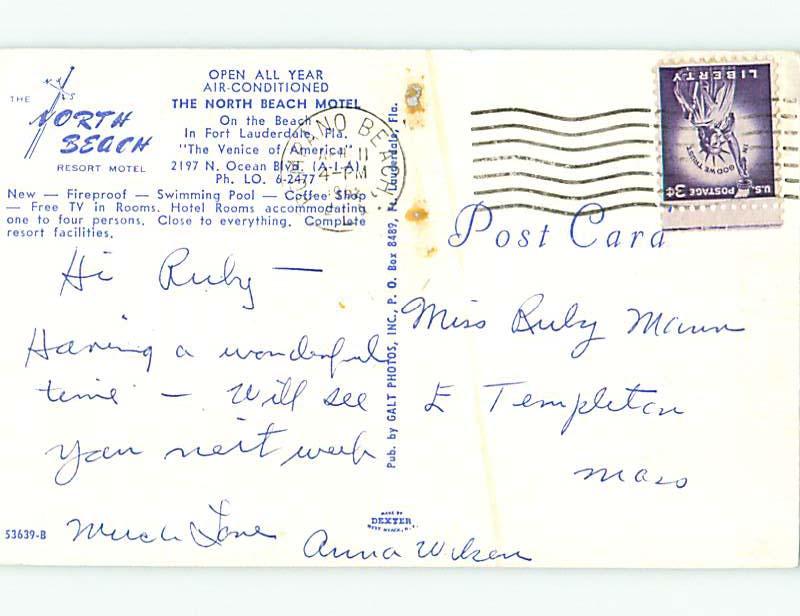 OPEN ALL YEAR
AIR-CONDITIONED
THE NORTH BEACH MOTEL
On the Beach
In Fort Lauderdale, Fla.
"The Venice of America"
2197 N. Ocean Blvd. (A-1-A)
Ph. LO. 6-2477
THE
NORTH
BEACH
RESORT MOTEL
New — Fireproof — Swimming Pool — Coffee Shop
— Free TV in Rooms. Hotel Rooms accommodating
one to four persons. Close to everything. Complete
resort facilities.
Hi Ruby —
Having a wonderful
time — Will see
you next week
Much Love
Anna Wilson
53639-B
Pub. by GALT PHOTOS, INC., P. O. Box 8489, Ft. Lauderdale, Fla.
MADE BY
DEXTER
BEACH,
4 - PM
LIBERTY
IN GOD WE TRUST
U.S. POSTAGE 3¢
Post Card
Miss Ruby Mann
E Templeton
Mass